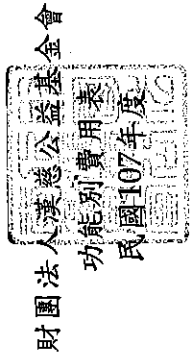 財團法人漢慈公益基金會
功能別費用表
民國107年度